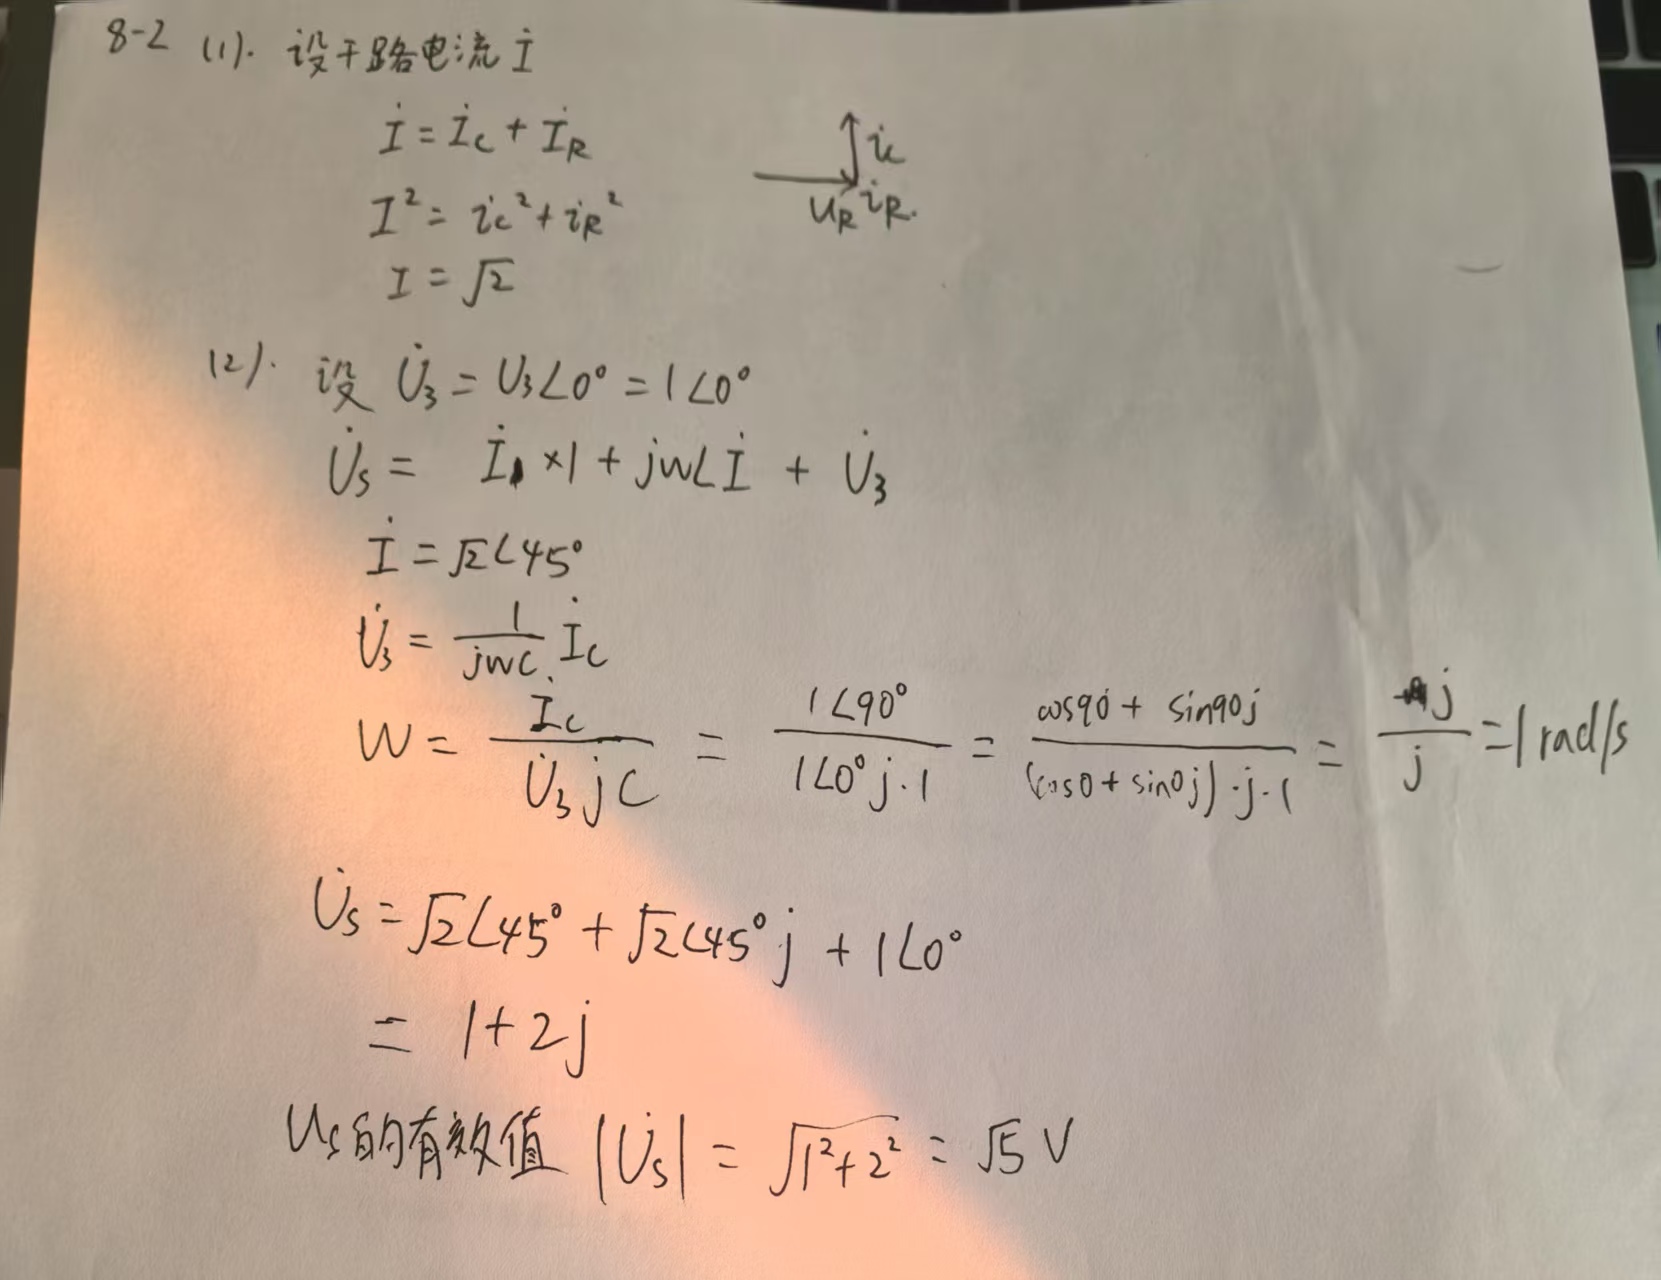 8-2 (1). 设干路电流 İ
İ = İc + İR
I² = ic² + iR²
I = √2
ic
UR iR.
(2). 设 U̇₃ = U₃∠0° = 1∠0°
U̇s = İ ×1 + jwLİ + U̇₃
İ = √2∠45°
U̇₃ = 1/jwC İc
W = İc/U̇₃jC = 1∠90°/1∠0°j·1 = cos90 + sin90j/(cos0 + sin0j)·j·1 = j/j = 1 rad/s
U̇s = √2∠45° + √2∠45°j + 1∠0°
= 1+2j
Us的有效值 |U̇s| = √1²+2² = √5 V